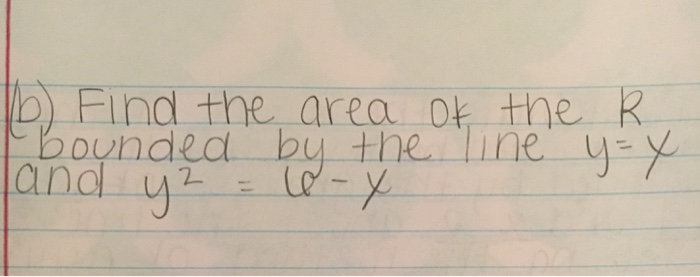 (b) Find the area of the R
bounded by the line y=x
and y² = 6-x